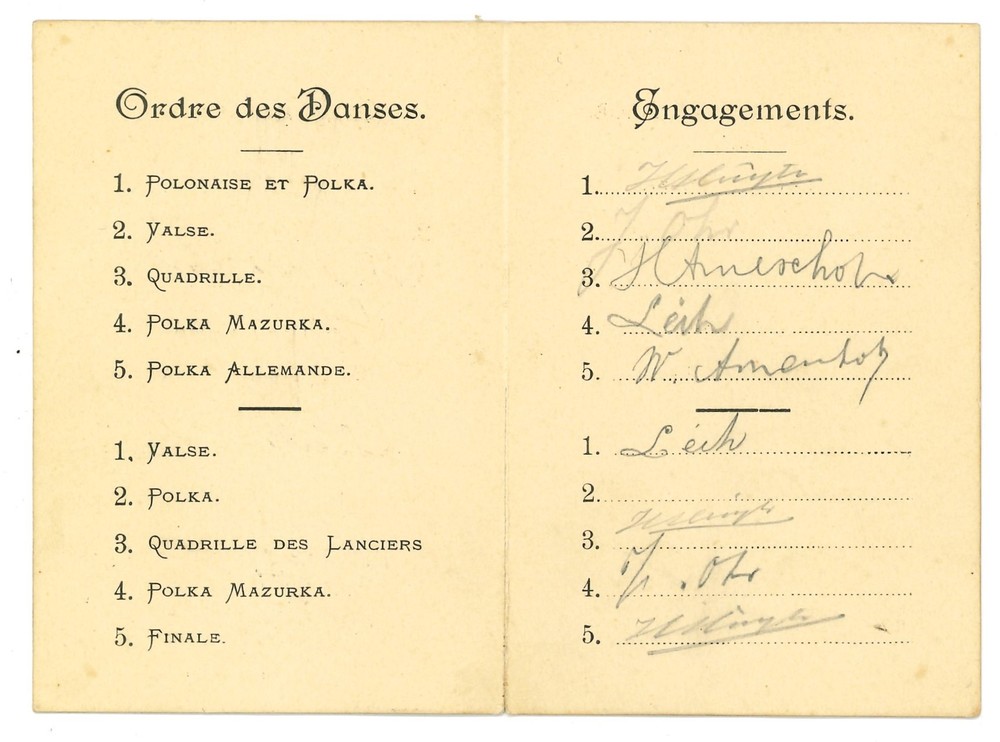 Ordre des Danses.
1. Polonaise et Polka.
2. Valse.
3. Quadrille.
4. Polka Mazurka.
5. Polka Allemande.
1. Valse.
2. Polka.
3. Quadrille des Lanciers
4. Polka Mazurka.
5. Finale.
Engagements.
1.
2. Ohr
3.
4. Léih
5. W.
1. Léih
2.
3.
4. J. Ohr
5.